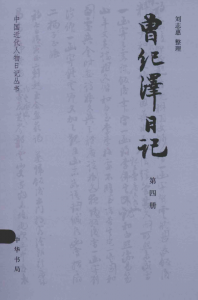 中国近代人物日记丛书
刘志惠 整理
曾纪泽日记
第四册
中华书局